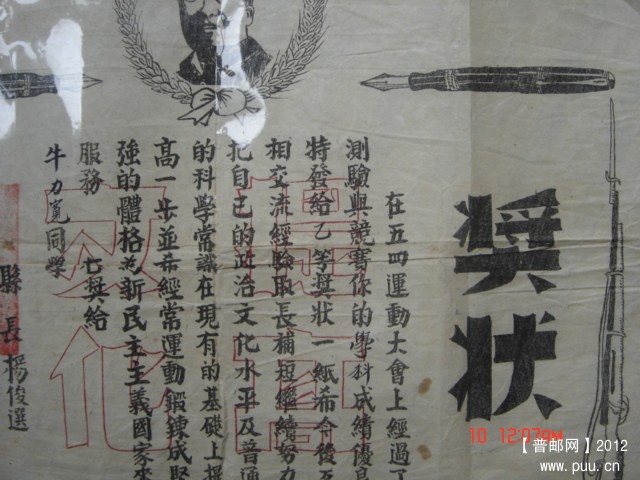 奬状
在五四運動大會上經過了
測驗與競賽你的學科成績優良
特發給乙等奬状一紙希今後
相交流經驗取長補短繼續努力
把自己的政治文化水平及普通
的科學常識在現有的基礎上提
高一步並希經常運動鍛鍊成堅
強的體格為新民主主義國家
服務 奬給
牛力寬同學
縣長楊俊選
化
10 12:07PM
【普邮网】2012
www.puu.cn